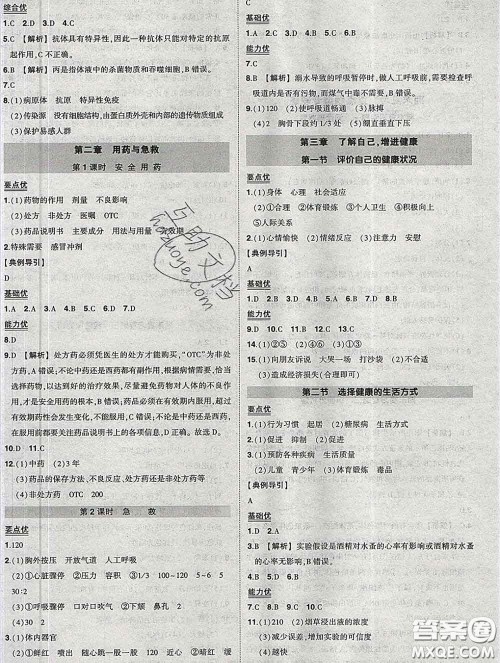 综合优
1.B 2.D 3.D 4.C
5.C 【解析】抗体具有特异性,因此一种抗体只能对特定的抗原
起作用,C正确。
6.B 【解析】丙是指体液中的杀菌物质和吞噬细胞,B错误。
7.C
8.(1)病原体 抗原 特异性免疫
(2)传染源 没有细胞结构,由蛋白质外壳和内部的遗传物质组成
(3)保护易感人群
第二章 用药与急救
第1课时 安全用药
要点优
1.(1)药物的作用 剂量 不良影响
(2)处方 非处方 医嘱 OTC
(3)药品说明书 主要成分 作用 用法与用量 有效期
2.特殊需要 感冒冲剂
【典例导引】
D
基础优
1.A 2.A 3.D 4.B 5.C 6.C
能力优
7.B 8.D
9.D 【解析】处方药必须凭医生的处方才能购买,“OTC”为非处
方药,A错误;不能自己增加用药量,根据病情需要,恰当
选择药物,以达到最好的治疗效果,尽量避免药物对人体的不良
作用或危害叫安全用药,B错误;药品超过有效期,
有效药性会发生变化,不能服用,C错误;无论是处方药还是非处方药,
在服用前都要关注药品说明书上的各项信息,D正确。故选D
10.D
11.(1)中药 (2)3年
(3)药品的保存方法、不良反应、注意事项等
(4)非处方药 OTC 200
第2课时 急救
要点优
1.120
2.(1)胸外按压 开放气道 人工呼吸
(2)①心脏骤停 ②压力 容积 ③1/3 100~120 5~6
30:2
(3)①呼吸骤停 口对口吹气 ②仰卧 ③15~20 5 5
3.(1)体内器官
(2)①鲜红 喷出 随心跳一股一股 近心 ②暗红 缓
D
基础优
1.C 2.C 3.D 4.B 5.C 6.C
能力优
7.C 8.D 9.A
10.B 【解析】溺水导致的呼吸暂停时,做人工呼吸前,需要检查呼
吸道内是否有异物,保持呼吸道畅通,而煤气中毒不需要,B
错误。
11.(1)120 (2)使呼吸道畅通 (3)脉搏
12.(2)胸骨下段约1/3处 (5)绷直垂直下压
第三章 了解自己,增进健康
第一节 评价自己的健康状况
要点优
1.(1)身体 心理 社会适应
(2)①合理营养 ②体育锻炼 ③个人卫生 ④积极向上
⑤人际关系
2.(1)心情愉快 (2)情绪反应 (3)注意力 安慰
【典例导引】
A
基础优
1.D 2.C 3.A 4.C 5.D 6.C 7.D 8.D
能力优
9.D 10.A 11.C
12.(1)向朋友诉说 大哭一场 打沙袋 (2)不合适
(3)会造成经济损失(合理即可)
第二节 选择健康的生活方式
要点优
1.(1)行为习惯 起居 (2)糖尿病 生活方式
(3)①饮食 ②体育锻炼 ③酗酒
2.(1)预防各种疾病 生活质量
(2)儿童 青少年 (3)体育锻炼 毒品
【典例导引】
C
基础优
1.C
3.B 【解析】实验假设是酒精对水蚤的心率有影响或酒精对水蚤
的心率没有影响,B错误。
4.D 5.D 6.C 7.B
能力优
8.C 9.D
10.(2)烟草浸出液的浓度
(3)减少误差,增加实验可信度
(4)越大
互助文档
hazuoye.com
答案圈
MXQE.COM